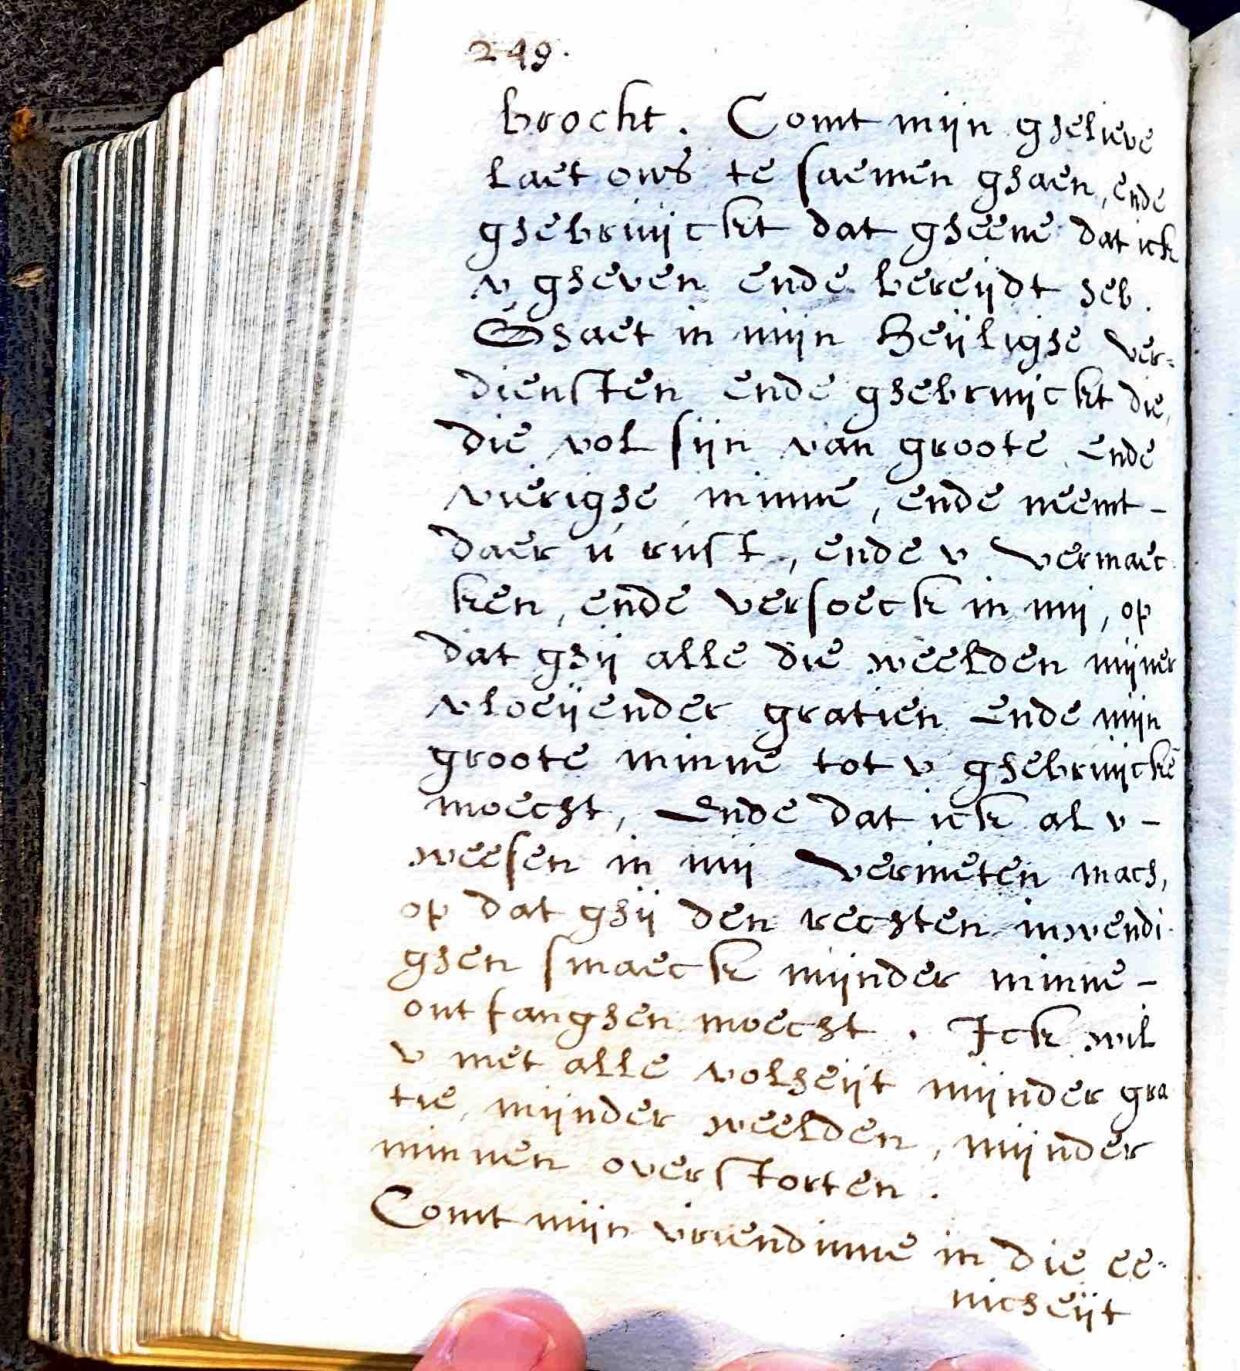 249.
brocht. Comt mijn ghelieve
laet ons te saemen ghaen, ende
ghebruijckt dat gheene dat ick
v gheven ende bereijdt heb.
Ghaet in mijn Heijlighe ver-
diensten ende ghebruijckt die,
die vol sijn van groote ende
vierighe minne, ende neemt-
daer u rust, ende v vermaec
ken, ende versoeck in mij, op
dat ghij alle die weelden mijner
vloeijender gratien ende mijn
groote minne tot v ghebruijckē
moecht, Ende dat ick al v-
weesen in mij vernieten mach,
op dat ghij den rechten inwendi-
ghen smaeck mijnder minne-
ontfanghen moecht. Ick wil
v met alle volheijt mijnder gra
tie, mijnder weelden, mijnder
minnen overstorten.
Comt mijn vriendinne in die ee-
nicheijt